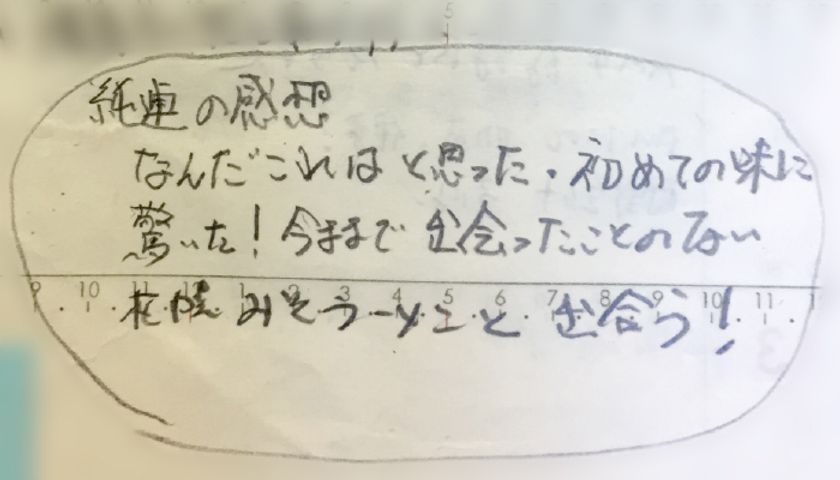 純連の感想
なんだこれはと思った。初めての味に
驚いた！今まで出会ったことのない
札幌みそラーメンと出会う！
9 10 11 12 1 2 3 4 5 6 7 8 9 10 11 1
5